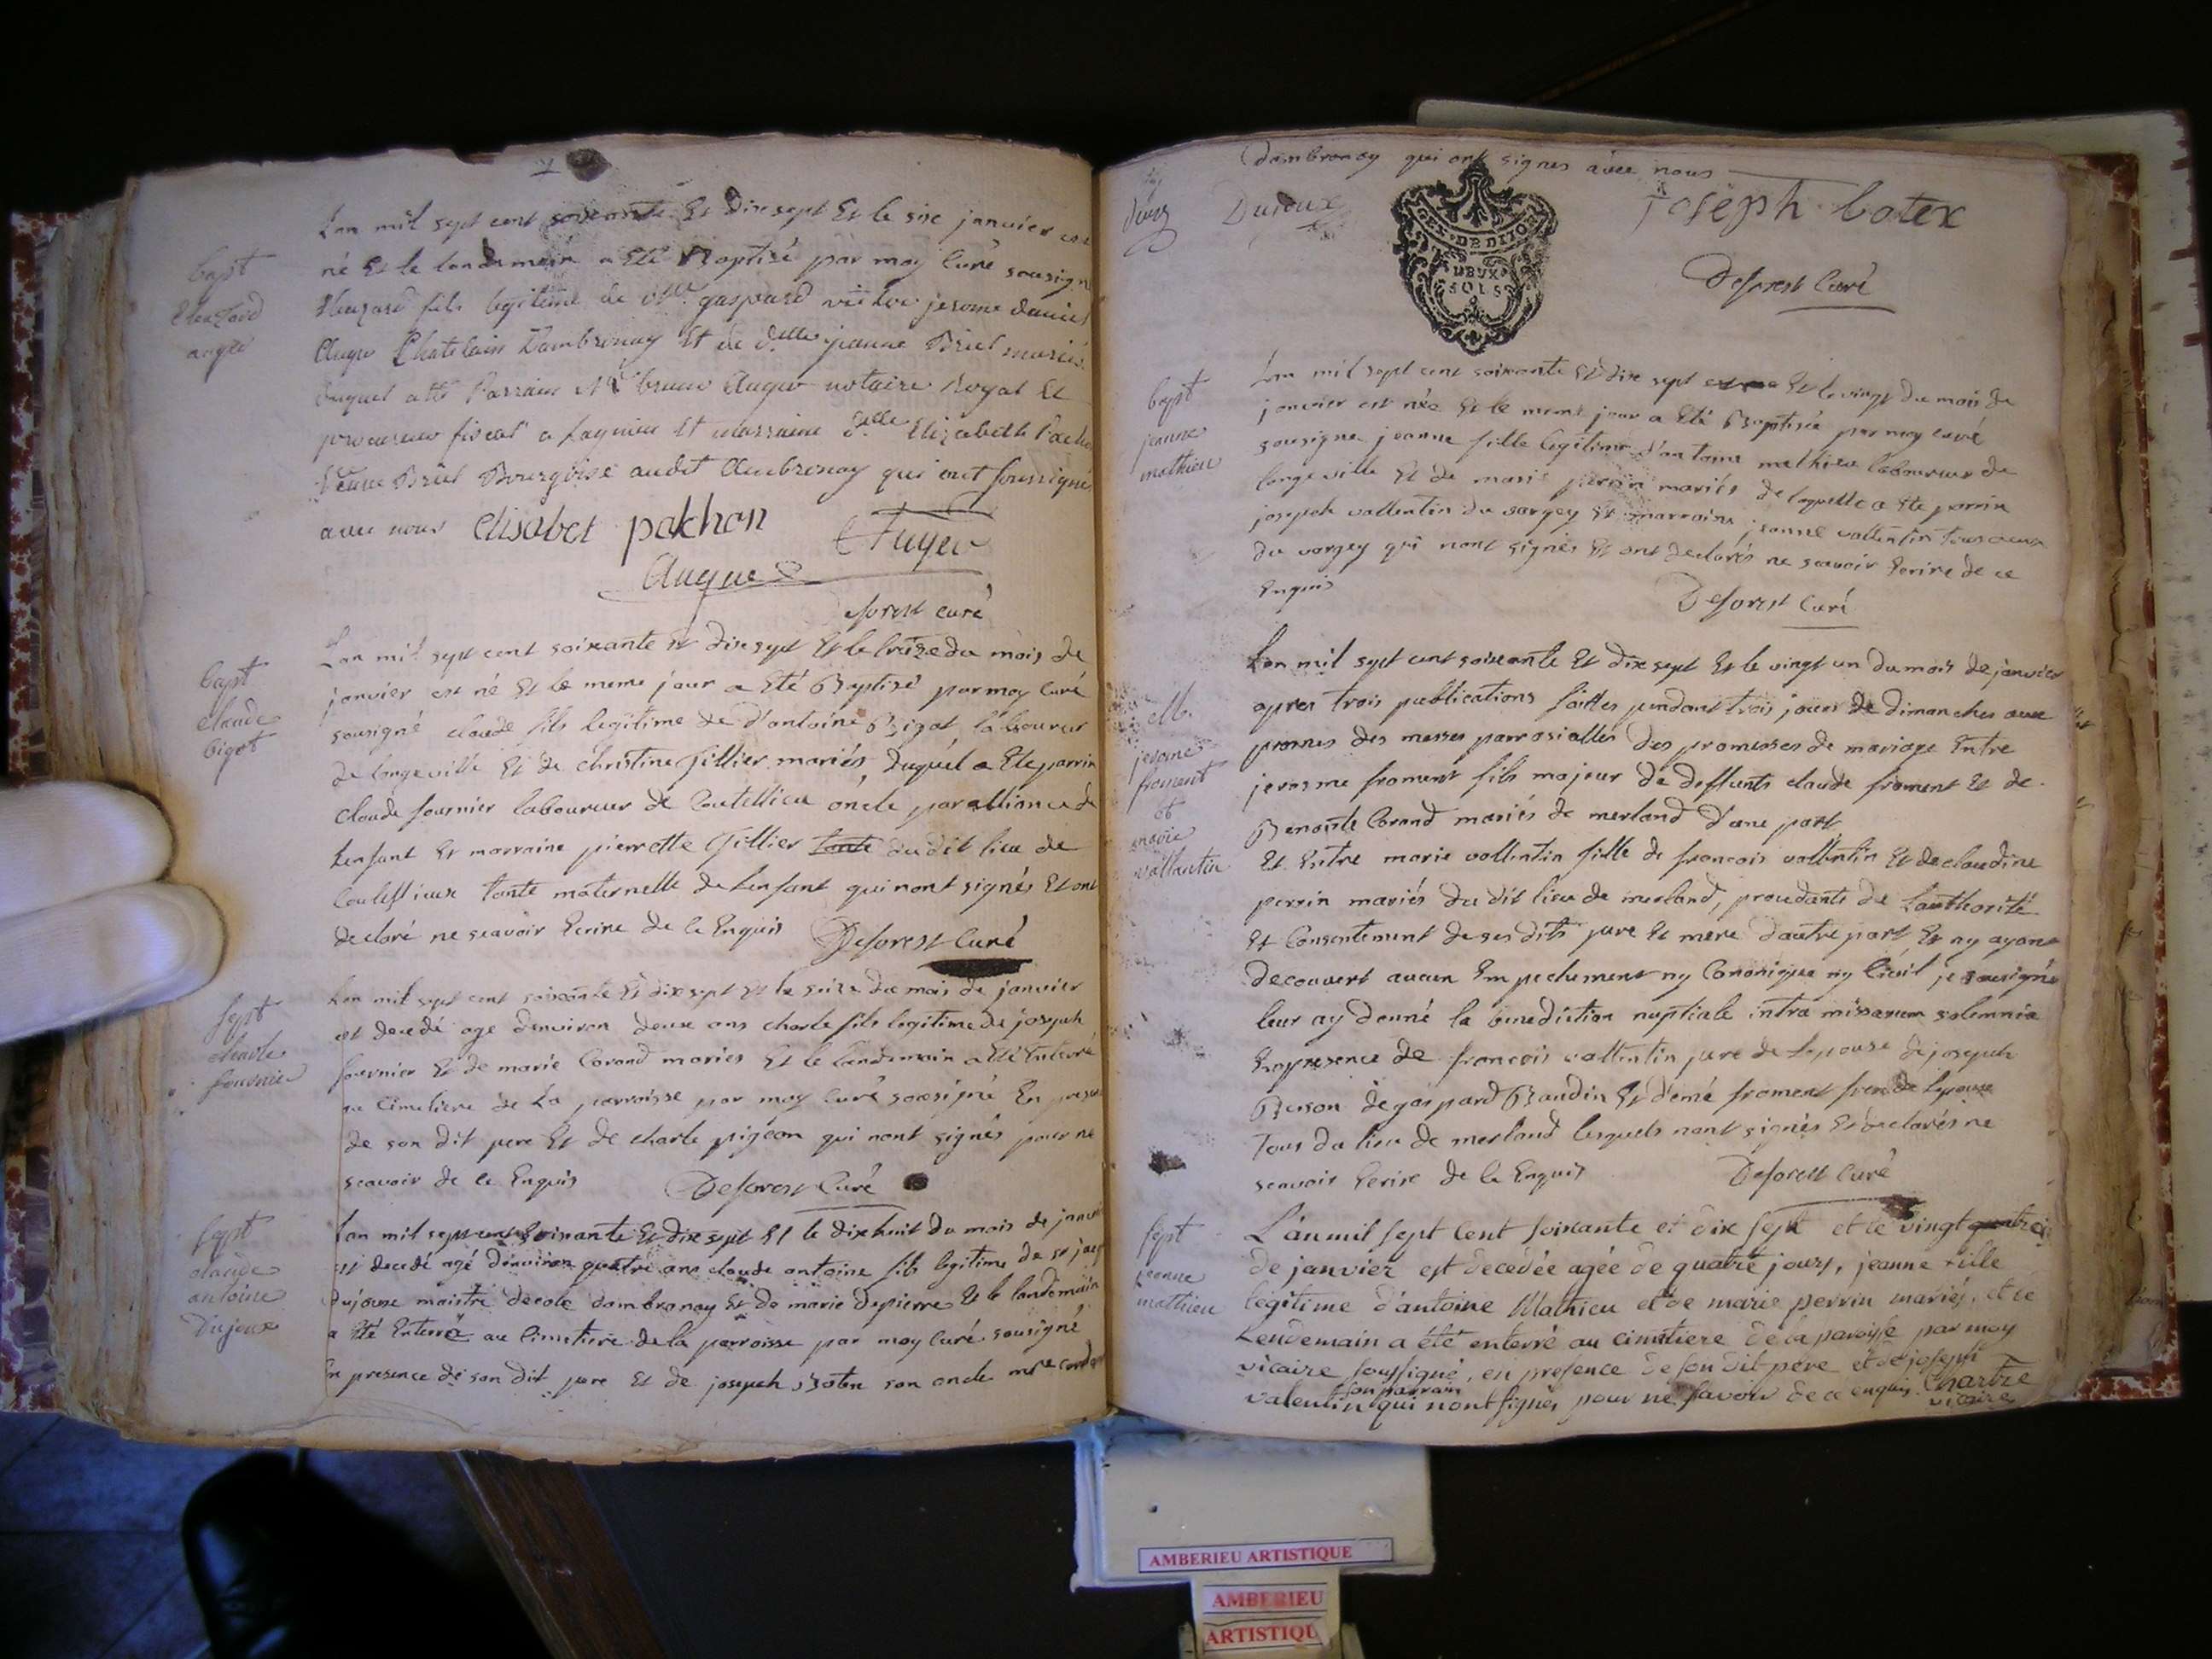 Lan mil sept cent soixante Et dix sept Et le six janvier est
né Et le lendemain a Eté Baptisé par moy Curé sousigné
fils legitime de gaspard jerome
Chatelain Dambronay Et de d.elle jeanne Briel mariés
Duquel a Eté Parrain notaire Royal Et
procureur fiscal a Lagnieu Et marraine d.elle Elizabeth
veuve Briel Bourgoise audit Ambronay qui ont soussigné
bapt
avec nous elisabet pakhon
Auger
Deforest curé
Lan mil sept cent soixante Et dix sept Et le treize du mois de
janvier est né Et le meme jour a Eté Baptisé par moy Curé
sousigné claude fils legitime de d'antoine Bigot laboureur
de longeville Et de Christine Tillier mariés, duquel a Ete parrin
claude fournier laboureur de Coutellieu oncle par alliance de
Lenfant Et marraine pierrette Tillier tante du dit lieu de
Coutellieux tante maternelle de Lenfant qui nont signés Et ont
declaré ne scavoir Ecrire de ce Enquis Deforest Curé
bapt
claude
bigot
Lan mil sept cent soixante Et dix sept Et le seize du mois de janvier
est decedé agé denviron deux ans charle fils legitime de joseph
fournier Et de marie Corand mariés Et le lendemain a Eté Enterré
au Cimetiere de La parroisse par moy Curé sousigné En
de son dit pere Et de charle pigeon qui nont signés pour ne
scavoir de ce Enquis Deforest Curé
sept
charle
fournier
Lan mil sept cent soixante Et dix sept Et le dix huit du mois de
est decedé agé denviron quatre ans claude antoine fils legitime de sr
dujoux maistre decole dambronay Et de marie depierre Et le landemain
a Eté Enterré au Cimetiere de la parroisse par moy Curé sousigné
En presence de son dit pere Et de joseph son oncle
sept
claude
antoine
Dujoux
Dambronay qui ont signés avec nous
Dujoux
joseph botex
GEN. DE DIJON
DEUX
SOLS
Deforest Curé
Lan mil sept cent soixante Et dix sept Et le vingt du mois de
janvier est née Et le meme jour a Eté Baptisée par moy curé
sousigné jeanne fille legitime d'antoine mathieu laboureur de
longeville Et de marie perrin mariés de laquelle a Ete parrin
joseph vallentin du vorgey Et marraine jeanne vallentin tous deux
du vorgey qui nont signés Et ont declarés ne scavoir Ecrire de ce
Enquis Deforest Curé
bapt
jeanne
mathieu
Lan mil sept cent soixante Et dix sept Et le vingt un du mois de janvier
apres trois publications faittes pendant trois jours de dimanches aux
prones des messes parrosialles des promesses de mariage Entre
jerosme froment fils majeur de deffunts claude froment Et de
Benoite Corand mariés de merland d'une part
Et Entre marie vallentin fille de francois vallentin Et de claudine
perrin mariés du dit lieu de merland, de Lauthorité
Et Consentement de ses dits pere Et mere d'autre part Et ny ayant
decouvert aucun Empechement ny Canonique ny Civil je sousigné
leur ay donné la benediction nuptiale intra missarum solemnia
En presence de francois vallentin pere de Lepouse de joseph
de gaspard Baudin Et d'emé froment frere de Lepoux
Tous du lieu de merland lesquels nont signés Et declarés ne
scavoir Ecrire de ce Enquis Deforest Curé
M.
jerome
froment
et
marie
vallantin
L'an mil sept Cent soixante et dix sept et le vingt quatre
de janvier est decedée agée de quatre jours, jeanne fille
legitime d'antoine Mathieu et de marie perrin mariés, et le
Lendemain a été enterré au cimetiere de la paroisse par moy
vicaire soussigné, en presence de son dit pere et de joseph
valentin son parrain qui n'ont signés pour ne savoir de ce enquis. Chartre
vicaire
sept
jeanne
mathieu
AMBERIEU ARTISTIQUE
AMBERIEU
ARTISTIQU